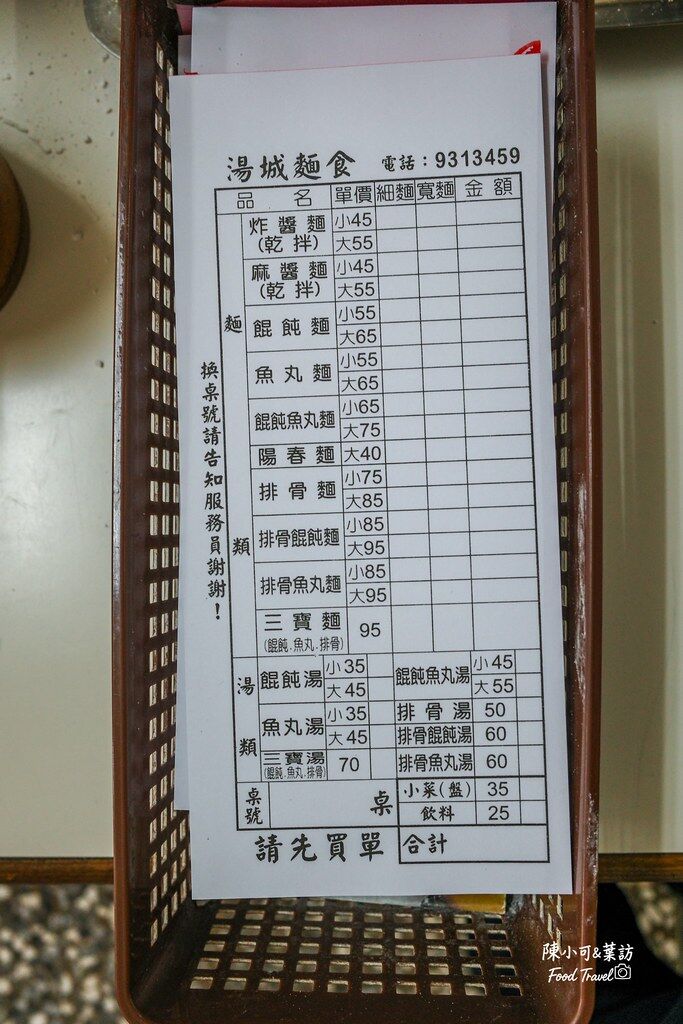 湯城麵食 電話：9313459
品名 單價 細麵 寬麵 金額
麵類
炸醬麵(乾拌) 小45
大55
麻醬麵(乾拌) 小45
大55
餛飩麵 小55
大65
魚丸麵 小55
大65
餛飩魚丸麵 小65
大75
陽春麵 大40
排骨麵 小75
大85
排骨餛飩麵 小85
大95
排骨魚丸麵 小85
大95
三寶麵 95
(餛飩.魚丸.排骨)
湯類
餛飩湯 小35 餛飩魚丸湯 小45
大45 大55
魚丸湯 小35 排骨湯 50
大45 排骨餛飩湯 60
三寶湯 70 排骨魚丸湯 60
(餛飩.魚丸.排骨)
桌號 桌 小菜(盤) 35
飲料 25
請先買單 合計
換桌號請告知服務員謝謝！
陳小可&葉訪
Food Travel